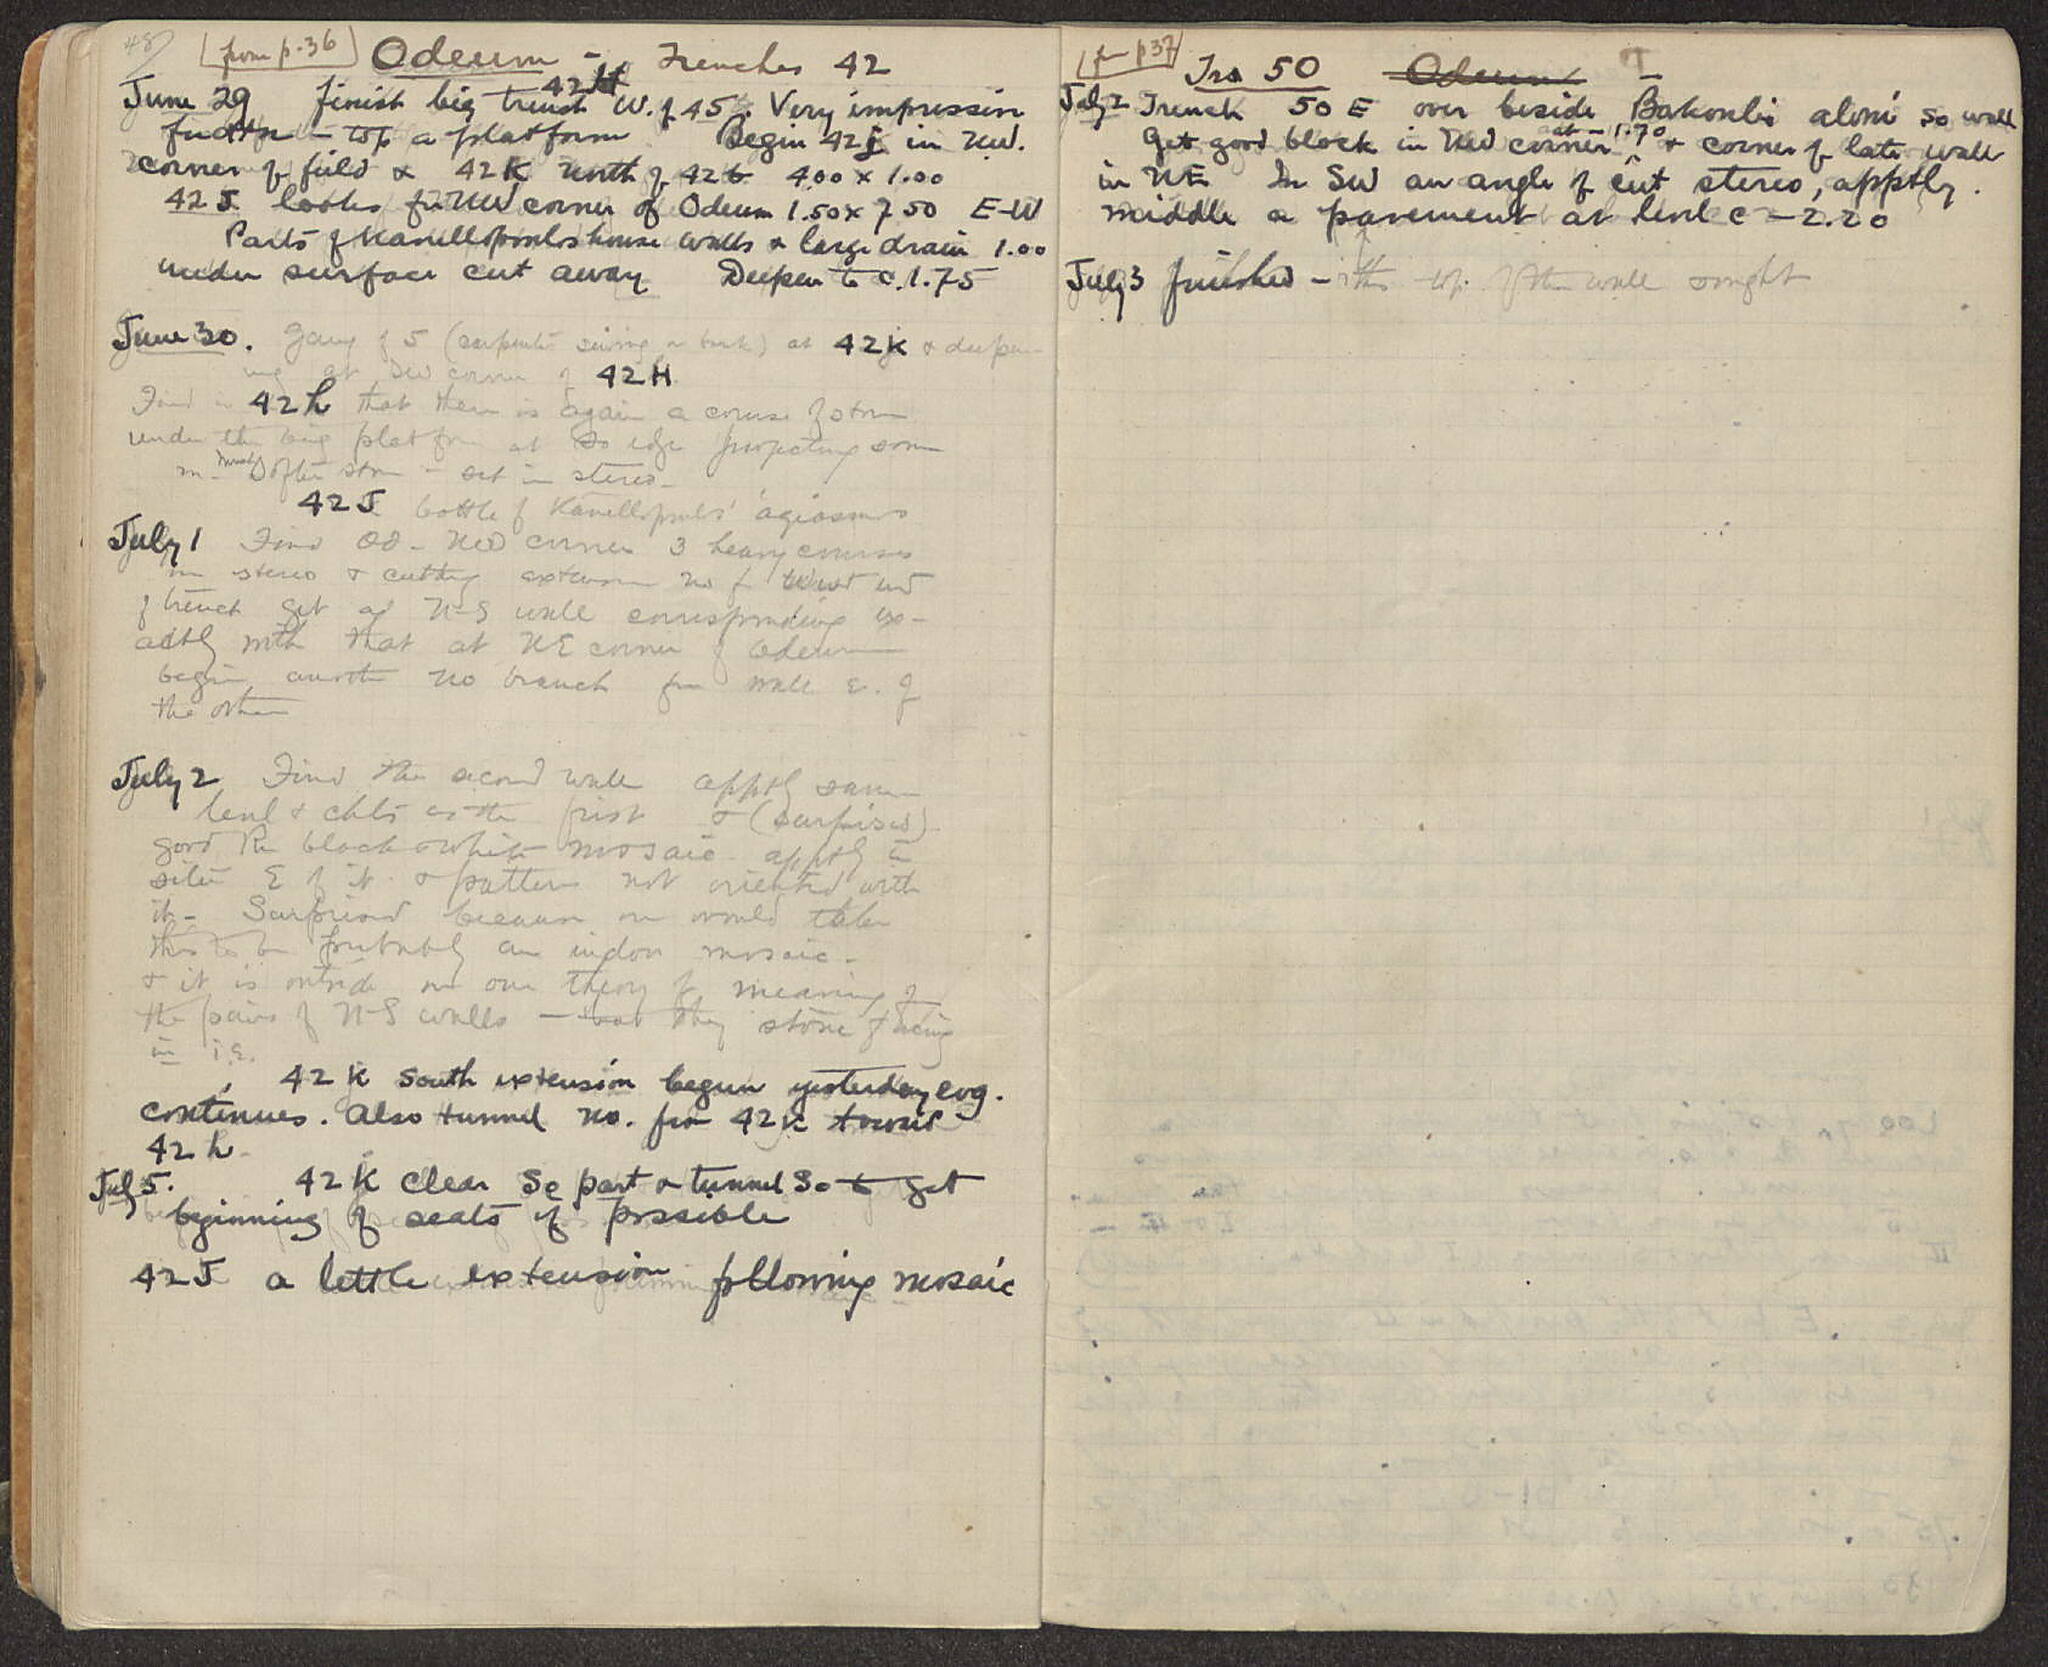 48
from p. 36 Odeum - Trenches 42
June 29 finish big trench 42H W. of 45. Very impressive
fndtn - top a platform Begin 42j in NW.
corner of field & 42K north of 42b 4.00 x 1.00
42J looks for NW corner of Odeum 1.50 x 7.50 E-W
Parts of Kanellopoulos house walls & large drain 1.00
under surface cut away Deepen to c. 1.75
June 30. Gang of 5 at 42K & deepen-
ing at SW corner of 42H
Find in 42h that there is again a course of stone
under the big platform at So edge projecting some
softer stone - set in stereo-
42J bottle of Kanellopoulos'
July 1 Find Od- NW corner 3 heavy courses
in stereo & cutting extension no from west end
of trench get a N-S wall corresponding ex-
actly with that at NE corner of Odeum
begin another no branch for wall E. of
the other
July 2 Find the second wall apptly same
level & as the first & (surprised)
good Rn black & white mosaic apptly in
situ E of it & pattern not oriented with
it- Surprised because one would take
this to be probably an indoor mosaic-
& it is outside on our theory of meaning of
the pairs of N-S walls - they stone facing
in i.e.
42K South extension begun yesterday evg.
continues. Also tunnel no. from 42K toward
42h.
July 5. 42K clear So part & tunnel So to get
beginning of seats if possible
42J a little extension following mosaic
fr p 37 Tr 50 Odeum
July 2 Trench 50 E over beside Bakoulis aloni so wall
Get good block in NW corner at -1.70 & corner of late wall
in NE In SW an angle of cut stereo, apptly.
middle a pavement at level c -2.20
July 3 finished - top of the wall sought